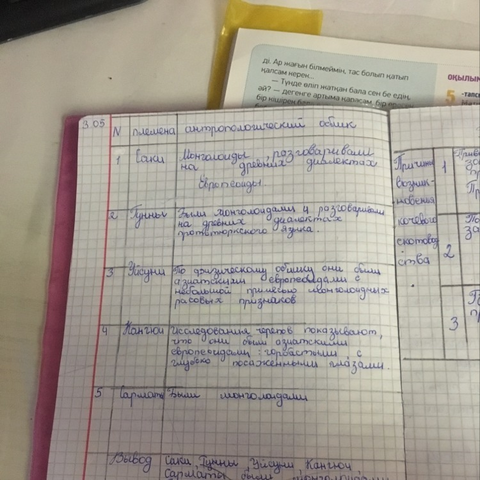 ді. Ар жағын білмеймін, тас болып қатып
қалсам керек...
— Түнде өліп жатқан бала сен бе едің,
ей? — дегенге артыма қарасам, бір
бір кішірек
ОҚЫЛЫМ
5
-тапс
3.05
N племена антропологический облик
1 Саки Монголоиды, разговаривали
на древних диалектах
Европеоиды.
2 Гунны Были монголоидами и разговаривали
на древних диалектах
прототюркского языка.
3 Уйсуни По физическому облику они были
азиатскими европеоидами с
небольшой примесью монголоидных
расовых признаков
4 Кангюи Исследования черепов показывают,
что они были азиатскими
европеоидами: горбастыми, с
глубоко посаженными глазами.
5 Сарматы Были монголоидами
Вывод Саки, Гунны, Уйсуни, Кангюи,
Сарматы были монголоидами
Причины
возник-
новения
кочевого
скотовод
ства
1
2
3